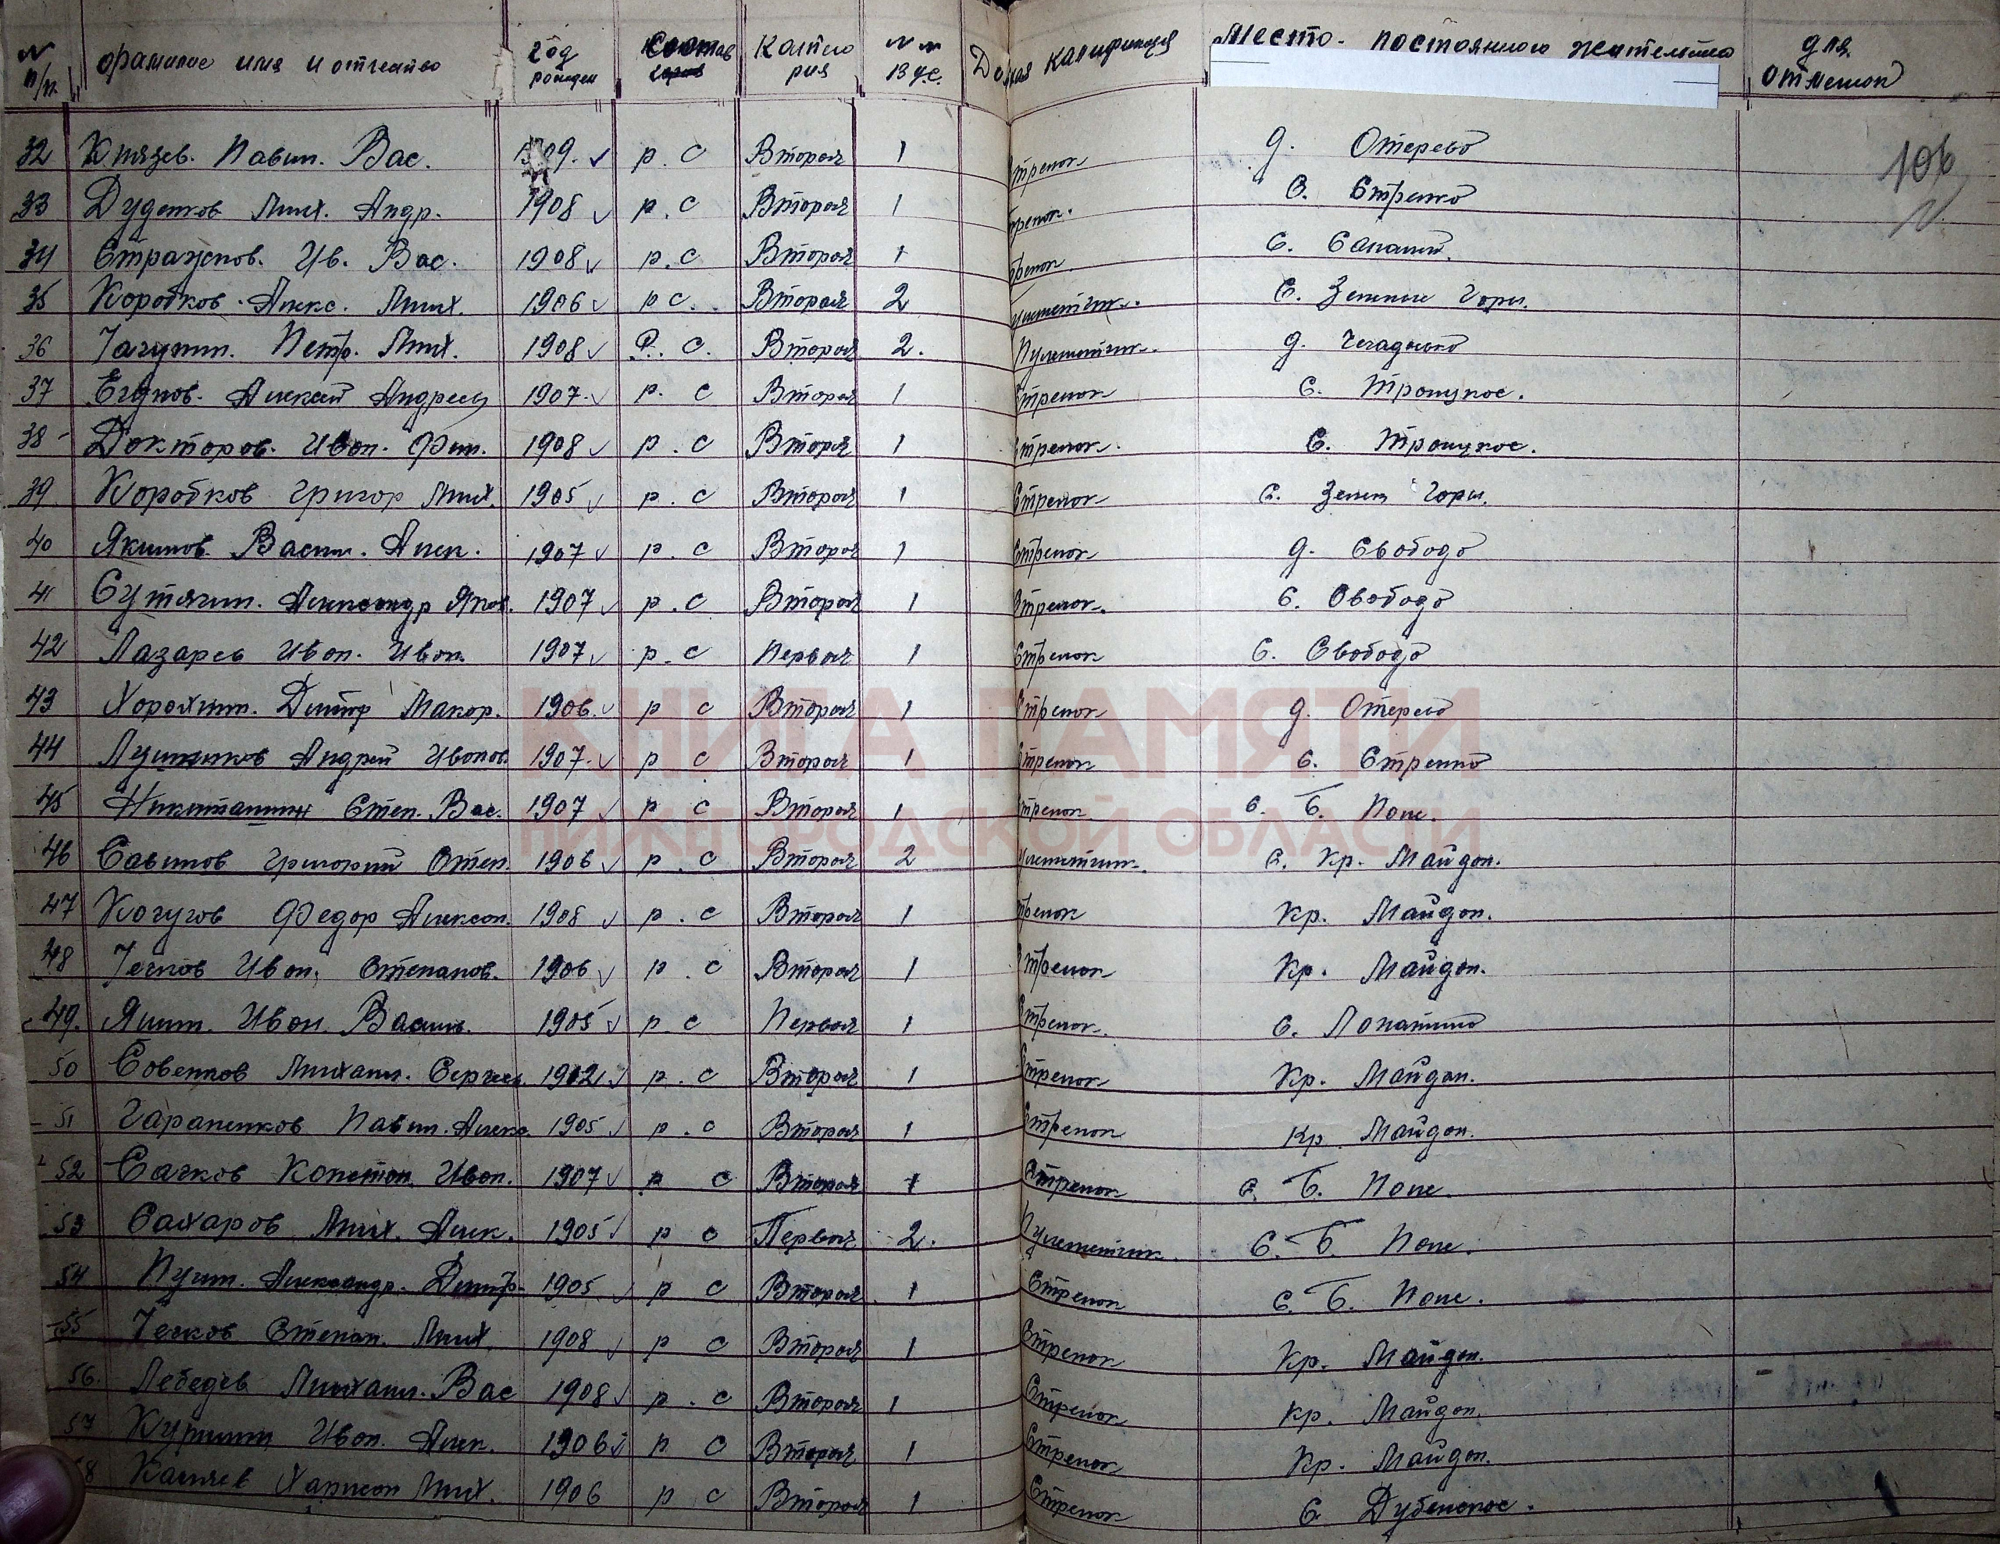 N п/п. фамилие имя и отчество год рожден Состав Катего рия N N ВУС. Должная Калификация Место постоянного жительства для отметок
32 Князев. Павил. Вас. 1909. р. С Вторая 1 стрелок д. Отерево 106
33 Дуденков Мих. Андр. 1908 р. С Вторая 1 стрелок. С. Стрелка
34 Стражнов. Ив. Вас. 1908 р. С Вторая 1 стрелок С.
35 Коробков. Алекс. Мих. 1906 р С. Вторая 2 пулеметчик. С. Зеленые Горы.
36 Петр. Мих. 1908 Р. С. Вторая 2. Пулеметчик. д.
37 Егунов. Алексей Андреев 1907. р. С Вторая 1 Стрелок С. Троицкое.
38 Докторов. Иван. Фил. 1908 р. С Вторая 1 Стрелок. С. Троицкое.
39 Коробков Григор Мих. 1905 р. С Вторая 1 Стрелок С. Зелен Горы.
40 Якимов. Васил. Алек. 1907 р. С Вторая 1 Стрелок д. Свобода
41 Сутягин. Александр Яков. 1907 р. С Вторая 1 Стрелок. С. Свобода
42 Лазарев Иван. Иван. 1907. р. С Первая 1 Стрелок С. Свобода
43 Дмитр Макар. 1906. р С Вторая 1 Стрелок д. Отерево
44 Лушников Андрей Иванов. 1907. р С Вторая 1 Стрелок С. Стрелка
45 Никиташин Степ. Вас. 1907 р С Вторая 1 Стрелок. с. Б. Поле.
КНИГА ПАМЯТИ
НИЖЕГОРОДСКОЙ ОБЛАСТИ
46 Савинов Григорий Степ. 1906 р С Вторая 2 пулеметчик. С. Кр. Майдан.
47 Федор Алексан. 1908 р. С Вторая 1 Стрелок Кр. Майдан.
48 Течков Иван. Степанов. 1906 р. С Вторая 1 Стрелок Кр. Майдан.
49. Яшин. Иван. Васил. 1905 р. С Первая 1 Стрелок. С. Лопатино
50 Совенков Михаил. Сергеев. 1902 р. С Вторая 1 Стрелок Кр. Майдан.
51 Гараненков Павил. Алекс. 1905 р. С Вторая 1 Стрелок Кр. Майдан.
52 Сачков Констан. Иван. 1907 р С Вторая 1 Стрелок С. Б. Поле.
53 Сахаров Мих. Алек. 1905 р С Первая 2. Пулеметчик. С. Б. Поле.
54 Александр. Дмитр. 1905 р С Вторая 1 Стрелок С. Б. Поле.
55 Течков Степан. Мих. 1908 р С Вторая 1 Стрелок Кр. Майдан.
56. Лебедев Михаил. Вас 1908 р. С Вторая 1 Стрелок Кр. Майдан.
57 Иван. Алек. 1906 р С Вторая 1 Стрелок Кр. Майдан.
58 Мих. 1906 р С Вторая 1 Стрелок С Дубенское.